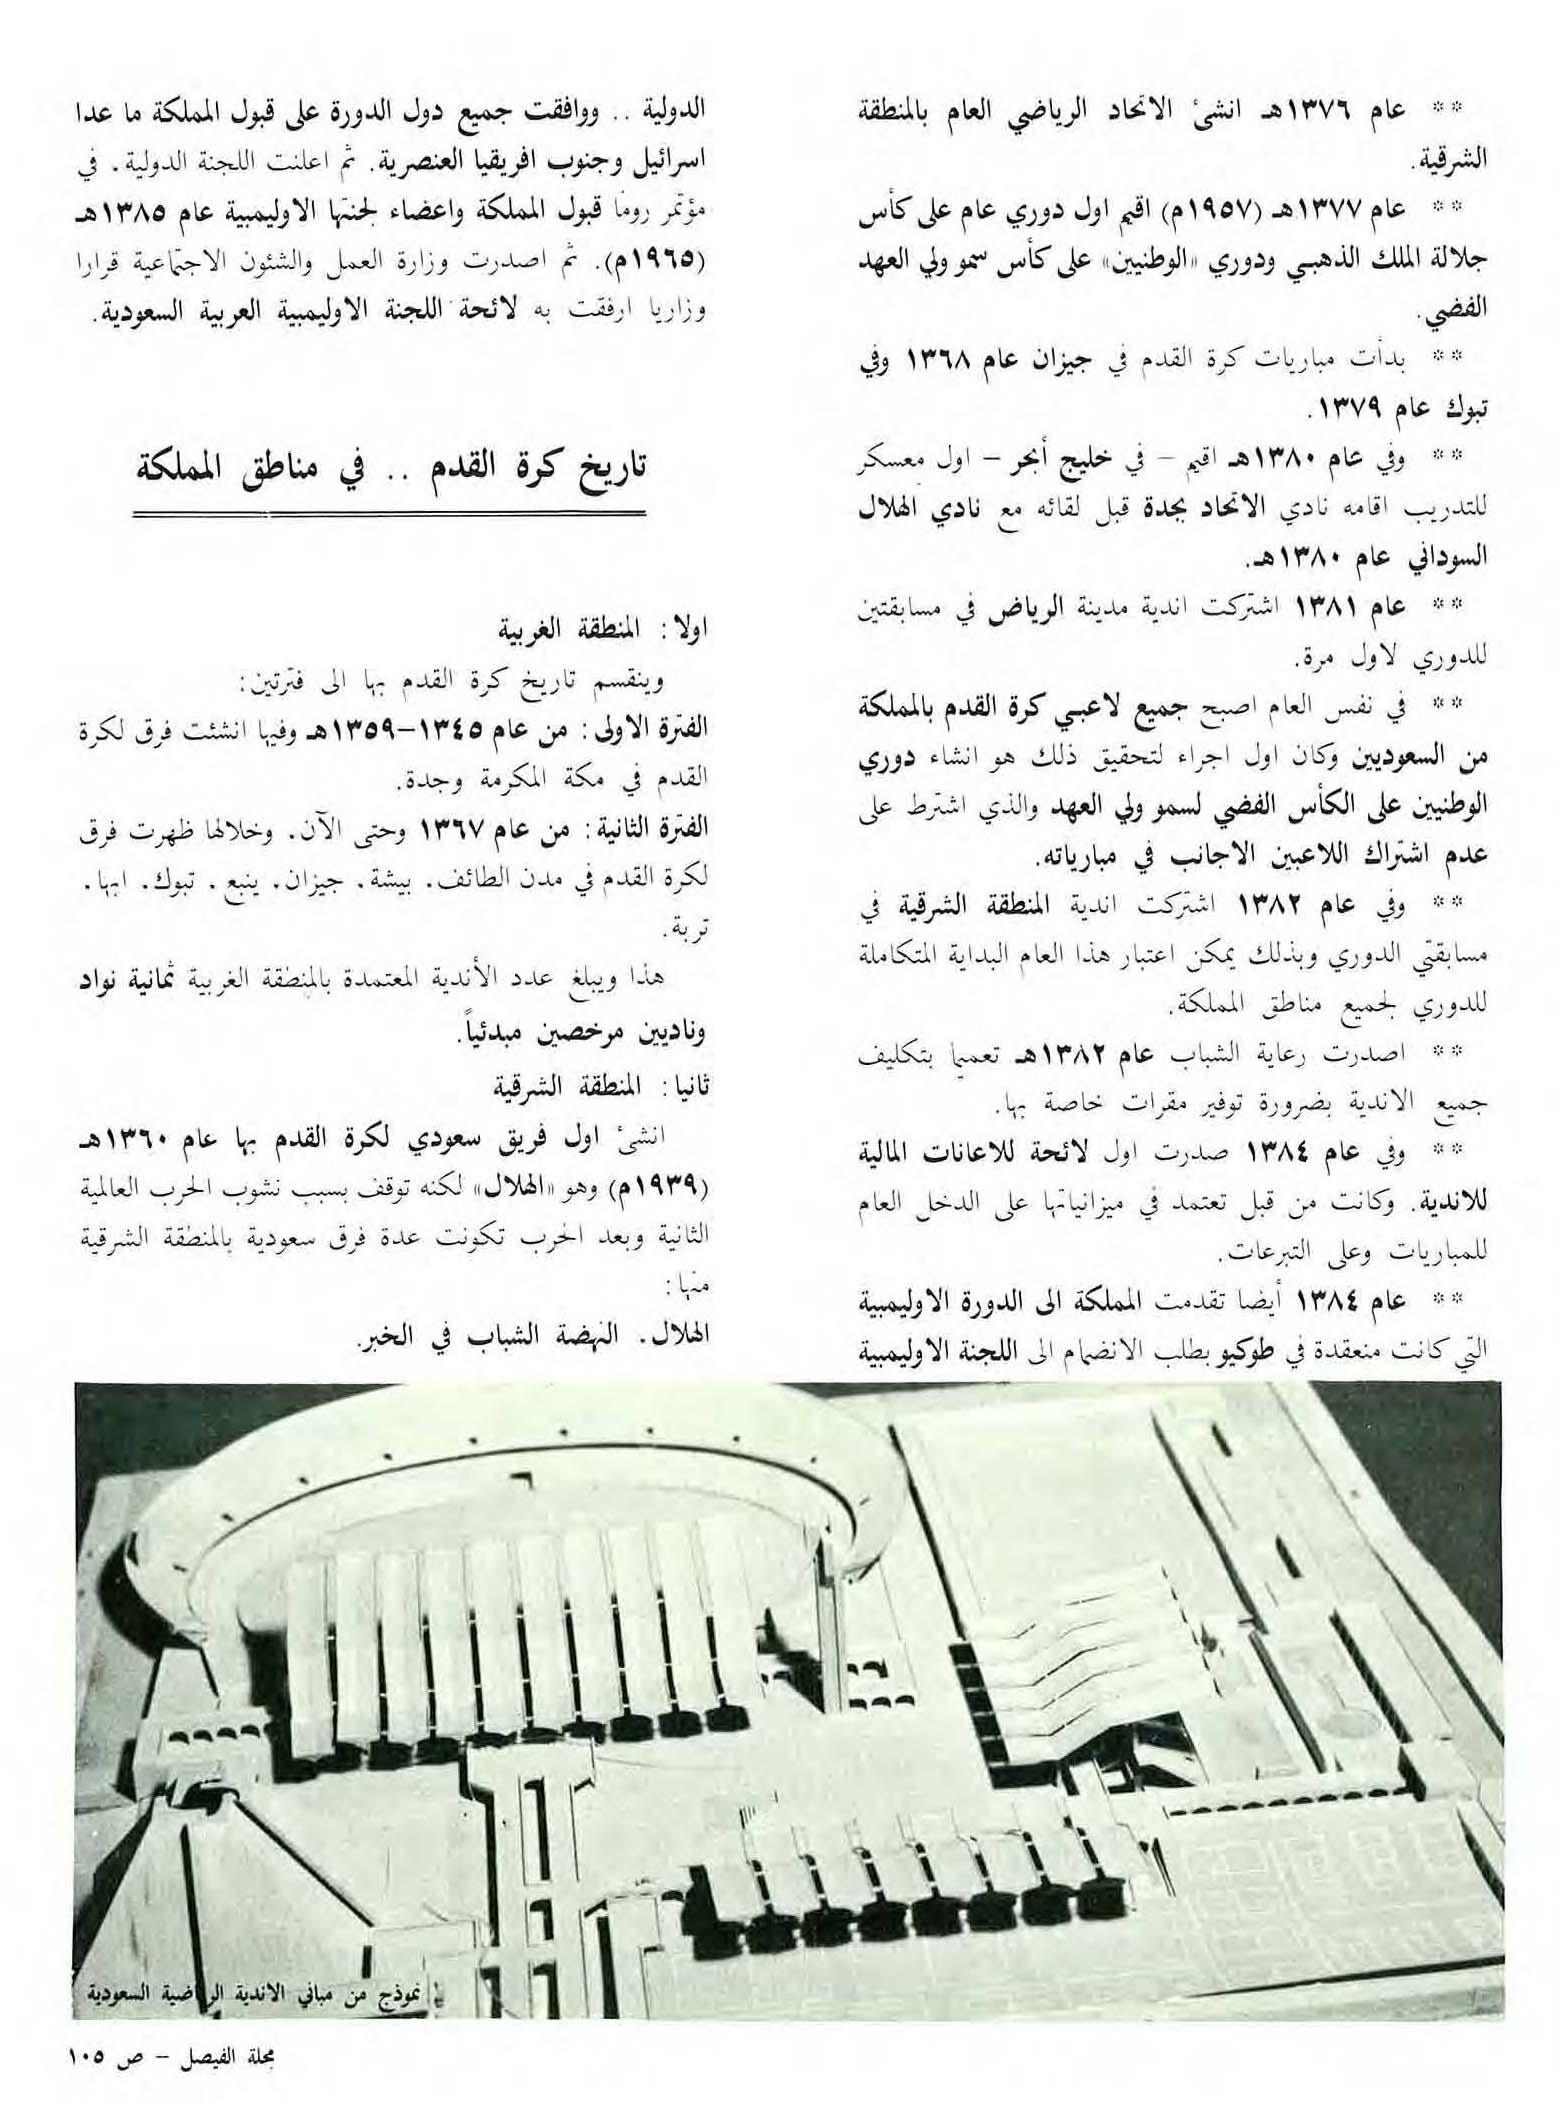 ** عام ١٣٧٦هـ انشئ الاتحاد الرياضي العام بالمنطقة
الشرقية.
** عام ١٣٧٧هـ (١٩٥٧م) اقيم اول دوري عام على كأس
جلالة الملك الذهبي ودوري «الوطنيين» على كأس سمو ولي العهد
الفضي.
** بدأت مباريات كرة القدم في جيزان عام ١٣٦٨ وفي
تبوك عام ١٣٧٩.
** وفي عام ١٣٨٠هـ اقيم – في خليج أبحر – اول معسكر
للتدريب اقامه نادي الاتحاد بجدة قبل لقائه مع نادي الهلال
السوداني عام ١٣٨٠هـ.
** عام ١٣٨١ اشتركت اندية مدينة الرياض في مسابقتين
للدوري لاول مرة.
** في نفس العام اصبح جميع لاعبي كرة القدم بالمملكة
من السعوديين وكان اول اجراء لتحقيق ذلك هو انشاء دوري
الوطنيين على الكأس الفضي لسمو ولي العهد والذي اشترط على
عدم اشتراك اللاعبين الاجانب في مبارياته.
** وفي عام ١٣٨٢ اشتركت اندية المنطقة الشرقية في
مسابقتي الدوري وبذلك يمكن اعتبار هذا العام البداية المتكاملة
للدوري لجميع مناطق المملكة.
** اصدرت رعاية الشباب عام ١٣٨٢هـ تعميما بتكليف
جميع الاندية بضرورة توفير مقرات خاصة بها.
** وفي عام ١٣٨٤ صدرت اول لائحة للاعانات المالية
للاندية. وكانت من قبل تعتمد في ميزانياتها على الدخل العام
للمباريات وعلى التبرعات.
** عام ١٣٨٤ أيضا تقدمت المملكة الى الدورة الاوليمبية
التي كانت منعقدة في طوكيو بطلب الانضمام الى اللجنة الاوليمبية
الدولية .. ووافقت جميع دول الدورة على قبول المملكة ما عدا
اسرائيل وجنوب افريقيا العنصرية. ثم اعلنت اللجنة الدولية. في
مؤتمر روما قبول المملكة واعضاء لجنتها الاوليمبية عام ١٣٨٥هـ
(١٩٦٥م). ثم اصدرت وزارة العمل والشئون الاجتماعية قرارا
وزاريا ارفقت به لائحة اللجنة الاوليمبية العربية السعودية.
تاريخ كرة القدم .. في مناطق المملكة
اولا: المنطقة الغربية
وينقسم تاريخ كرة القدم بها الى فترتين:
الفترة الاولى: من عام ١٣٤٥–١٣٥٩هـ وفيها انشئت فرق لكرة
القدم في مكة المكرمة وجدة.
الفترة الثانية: من عام ١٣٦٧ وحتى الآن. وخلالها ظهرت فرق
لكرة القدم في مدن الطائف. بيشة. جيزان. ينبع. تبوك. ابها.
تربة.
هذا ويبلغ عدد الأندية المعتمدة بالمنطقة الغربية ثمانية نواد
وناديين مرخصين مبدئياً.
ثانيا: المنطقة الشرقية
انشئ اول فريق سعودي لكرة القدم بها عام ١٣٦٠هـ
(١٩٣٩م) وهو «الهلال» لكنه توقف بسبب نشوب الحرب العالمية
الثانية وبعد الحرب تكونت عدة فرق سعودية بالمنطقة الشرقية
منها:
الهلال. النهضة الشباب في الخبر.
نموذج من مباني الاندية الرياضية السعودية
مجلة الفيصل – ص ١٠٥